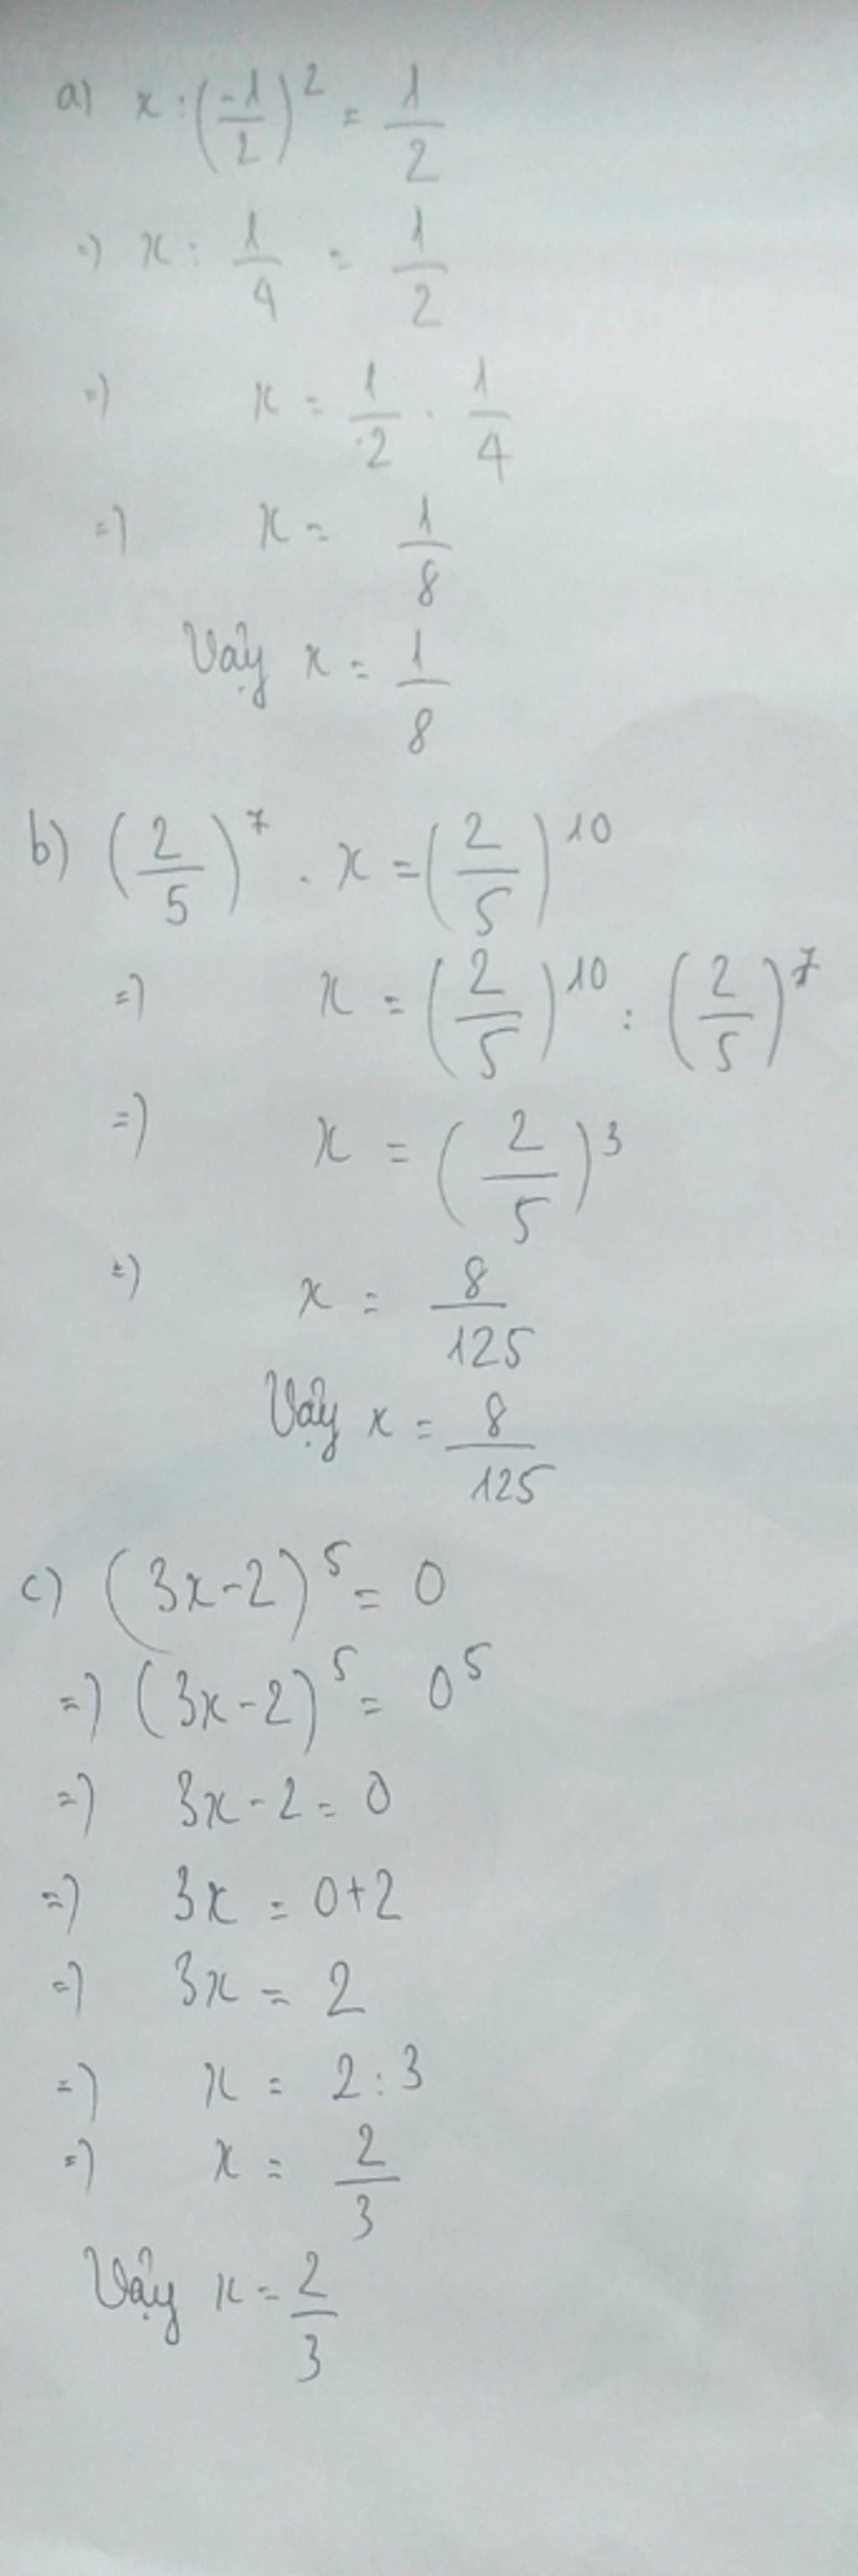 a) x : (-1/2)^2 = 1/2
=) x : 1/4 = 1/2
=) x = 1/2 . 1/4
=) x = 1/8
Vậy x = 1/8
b) (2/5)^7 . x = (2/5)^10
=) x = (2/5)^10 : (2/5)^7
=) x = (2/5)^3
=) x = 8/125
Vậy x = 8/125
c) (3x-2)^5 = 0
=) (3x-2)^5 = 0^5
=) 3x-2 = 0
=) 3x = 0+2
=) 3x = 2
=) x = 2:3
=) x = 2/3
Vậy x = 2/3